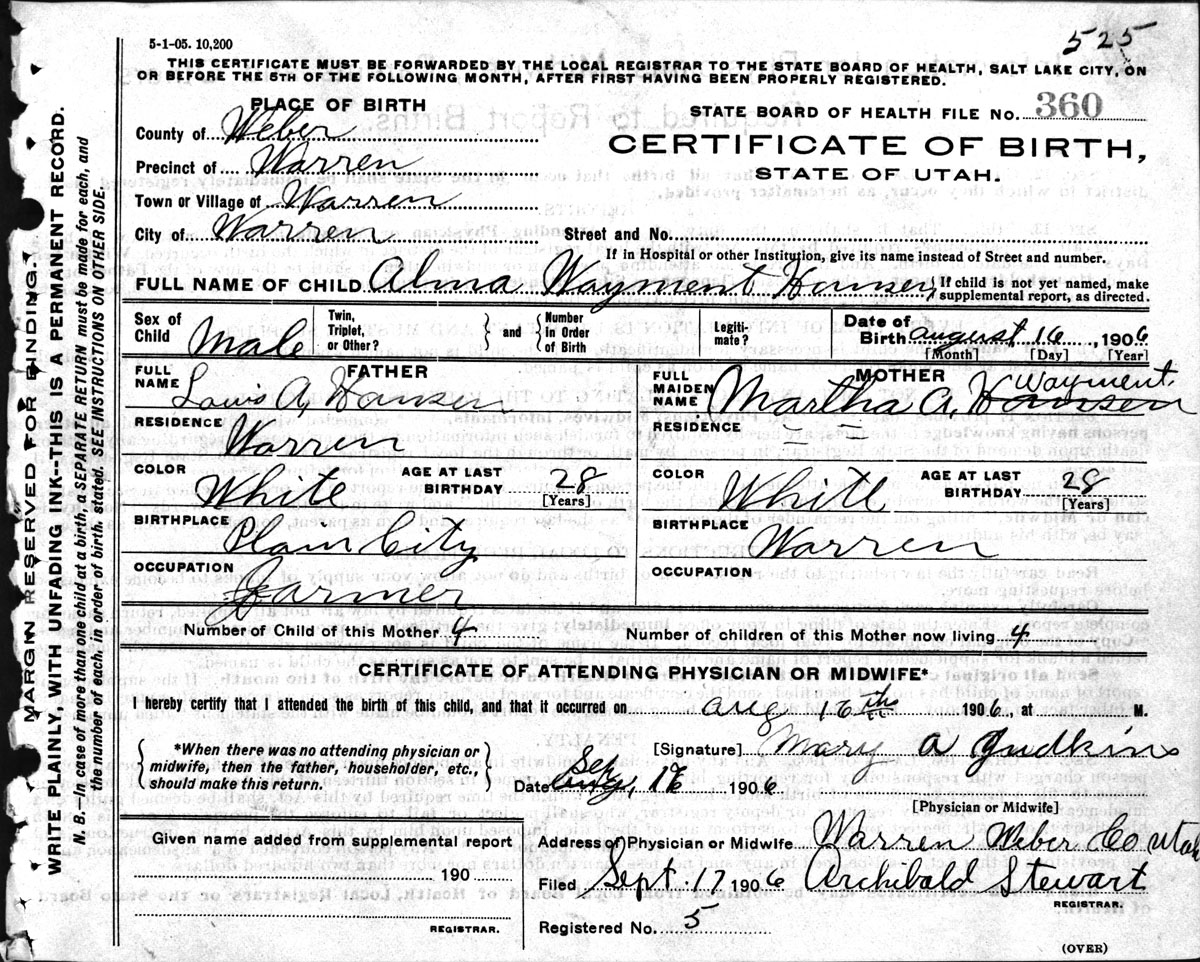 525
5-1-05. 10,200
THIS CERTIFICATE MUST BE FORWARDED BY THE LOCAL REGISTRAR TO THE STATE BOARD OF HEALTH, SALT LAKE CITY, ON
OR BEFORE THE 5TH OF THE FOLLOWING MONTH, AFTER FIRST HAVING BEEN PROPERLY REGISTERED.
PLACE OF BIRTH
STATE BOARD OF HEALTH FILE NO. 360
County of Weber
CERTIFICATE OF BIRTH,
Precinct of Warren
STATE OF UTAH.
Town or Village of Warren
City of Warren Street and No.
If in Hospital or other Institution, give its name instead of Street and number.
FULL NAME OF CHILD Alma Wayment Hansen { If child is not yet named, make supplemental report, as directed.
Sex of Child Male Twin, Triplet, or Other? } and { Number in Order of Birth Legiti-mate? Date of Birth August 16, 1906
[Month] [Day] [Year]
FATHER
FULL NAME Louis A, Hansen
RESIDENCE Warren
COLOR White AGE AT LAST BIRTHDAY 28
[Years]
BIRTHPLACE Plain City
OCCUPATION Farmer
MOTHER
FULL MAIDEN NAME Martha A. Hansen Wayment
RESIDENCE
COLOR White AGE AT LAST BIRTHDAY 28
[Years]
BIRTHPLACE Warren
OCCUPATION
Number of Child of this Mother 4 Number of children of this Mother now living 4
CERTIFICATE OF ATTENDING PHYSICIAN OR MIDWIFE*
I hereby certify that I attended the birth of this child, and that it occurred on Aug 16th 1906, at M.
{ *When there was no attending physician or midwife, then the father, householder, etc., should make this return. }
[Signature] Mary A Judkins
Date Sep 1906
[Physician or Midwife]
Given name added from supplemental report
190
REGISTRAR.
Address of Physician or Midwife Warren Weber Co Utah
Filed Sept. 17 1906 Archibald Stewart
REGISTRAR.
Registered No. 5
(OVER)
MARGIN RESERVED FOR BINDING.
WRITE PLAINLY, WITH UNFADING INK--THIS IS A PERMANENT RECORD.
N. B.--In case of more than one child at a birth, a SEPARATE RETURN must be made for each, and
the number of each, in order of birth, stated. SEE INSTRUCTIONS ON OTHER SIDE.